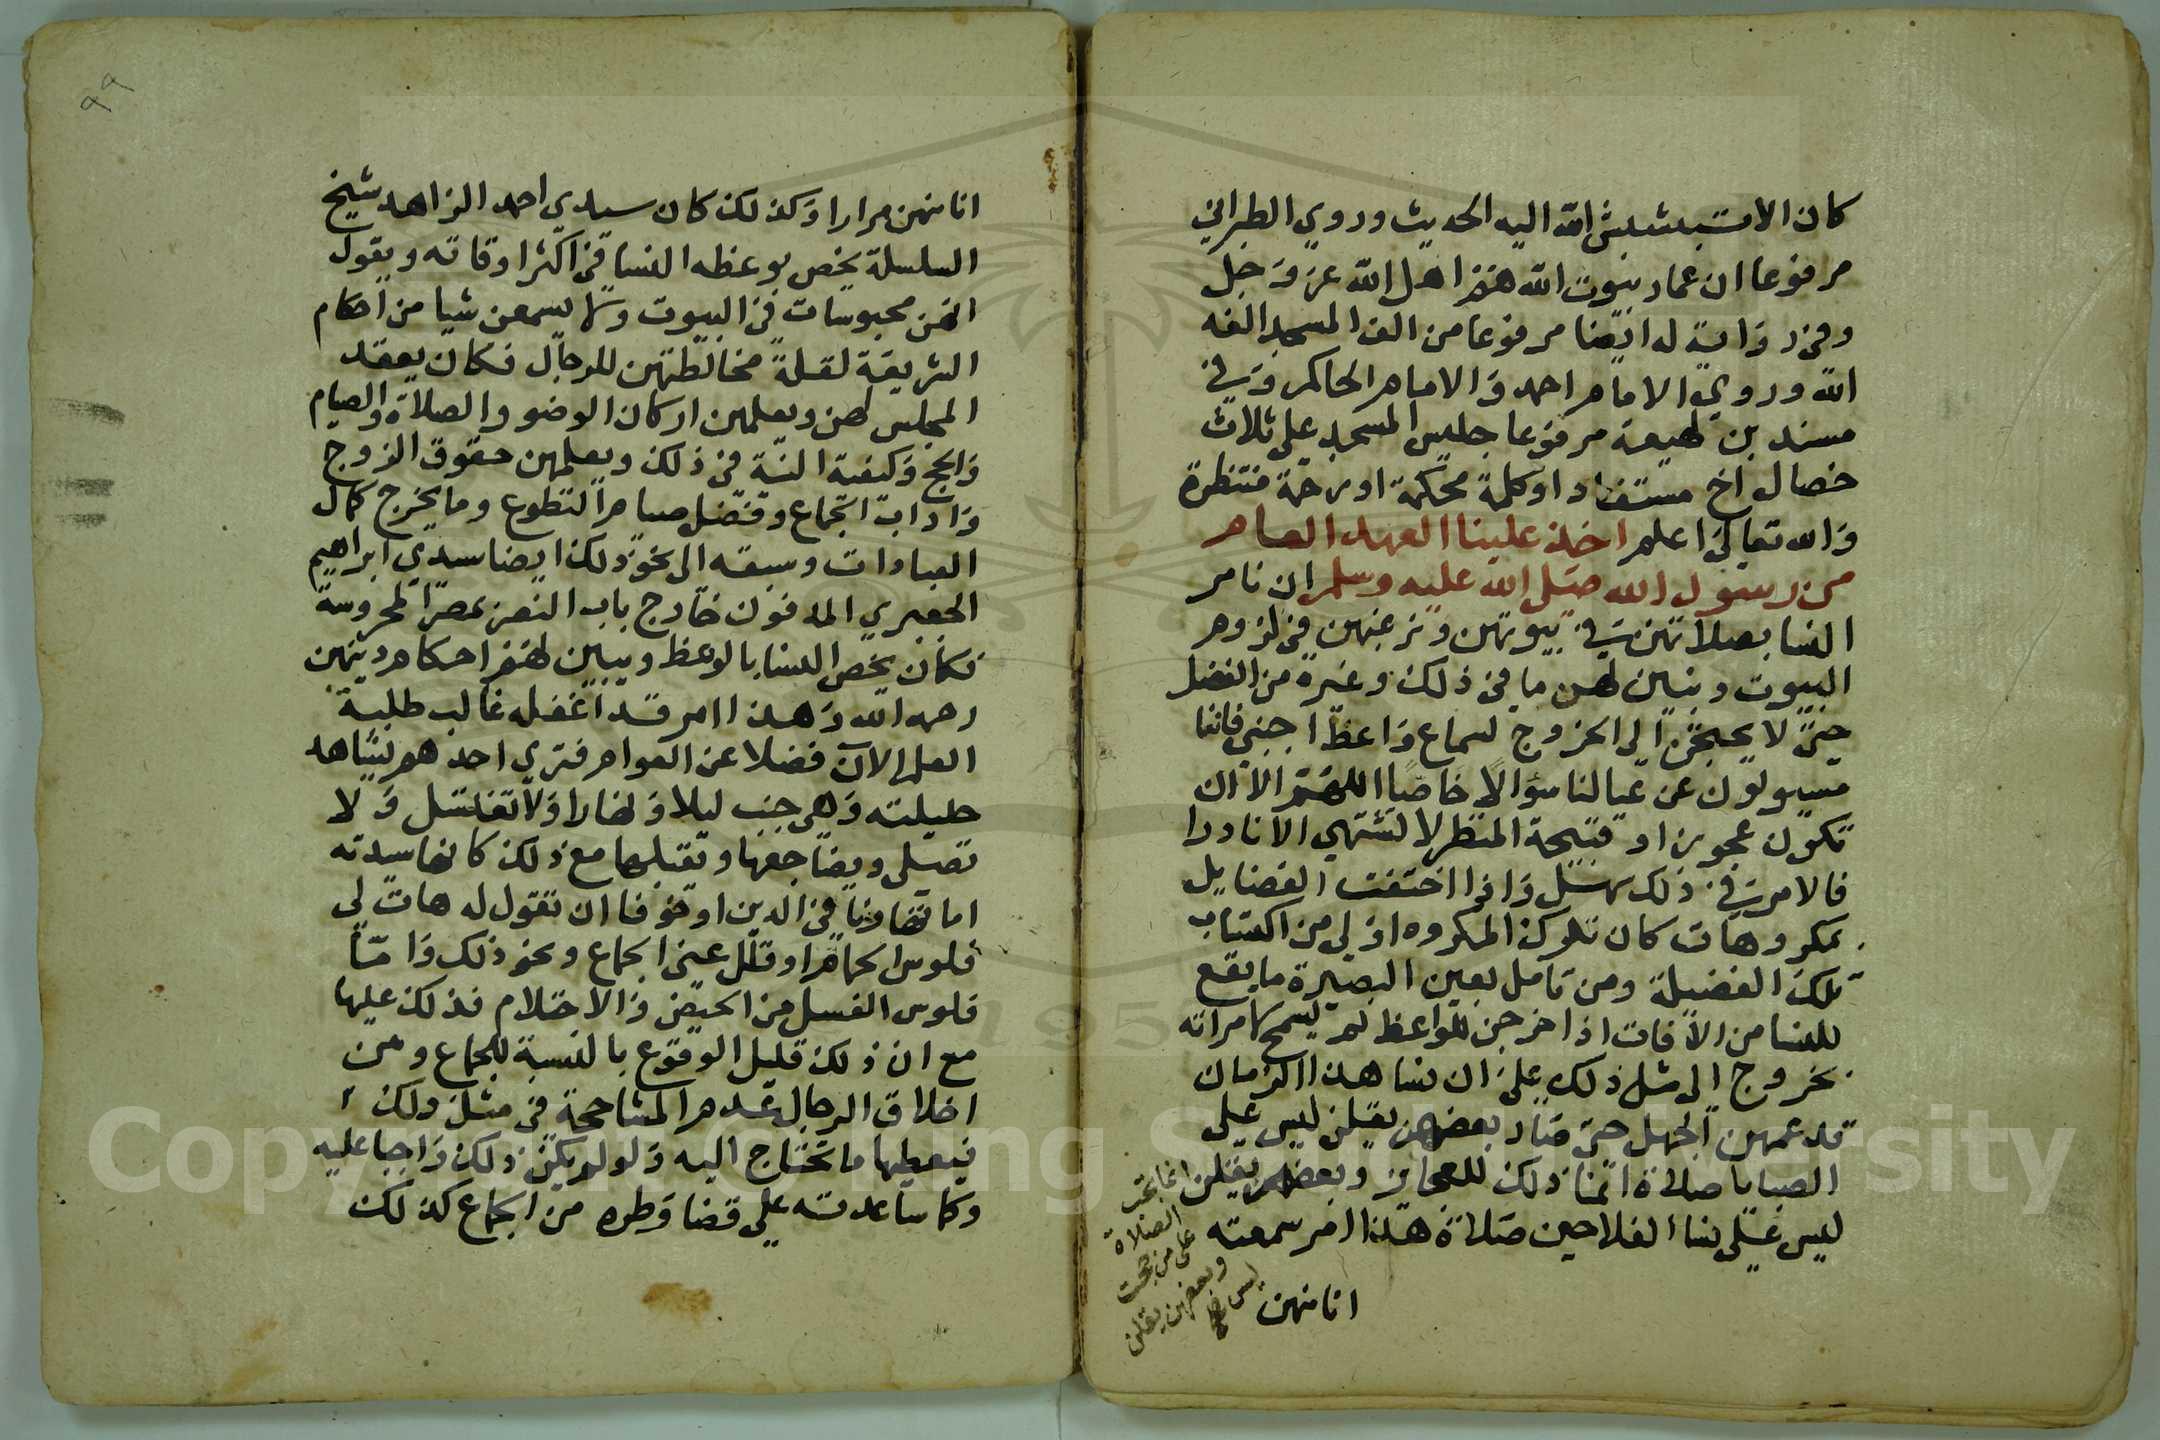 كان الا تبشبش الله اليه الحديث وروي الطبراني
مرفوعا ان عمار بيوت الله هم اهل الله عز وجل
وفي رواية له ايضا مرفوعا من الف المسجد الفه
الله وروي الامام احمد والامام الحاكم وفي
مسند بن لهيعة مرفوعا جليس المسجد على ثلاث
خصال اخ مستفاد او كلمة محكمة او رحمة منتظرة
والله تعالى اعلم اخذ علينا العهد العام
من رسول الله صلى الله عليه وسلم ان نامر
النسا بصلاتهن في بيوتهن ونرغبهن في لزوم
البيوت ونبين لهن ما في ذلك وغيره من الفضل
حتى لا يحتجن الى الخروج لسماع واعظ اجنبي فاننا
مسيولون عن عيالنا سؤالا خاصا اللهم الا ان
تكون عجوزا او قبيحة المنظر لا تشتهي الا نادرا
فالامر في ذلك سهل واذا اختفت الفضايل
بمكروهات كان تلوك المكروه اولى من اكتساب
تلك الفضيلة ومن تامل بعين البصيرة ما يقع
للنسا من الافات اذا خرجن للواعظ لم يسمح لامراته
بخروج الى مثل ذلك على ان نسا هذا الزمان
قد عمهن الجهل حتى صار بعضهن يقلن ليس على
الصبايا صلاة انما ذلك للعجايز وبعضهن يقلن انما تجب
الصلاة
على من حجت
وبعضهن يقلن
ليس على نسا الفلاحين صلاة هذا امر سمعته
انا منهن
٩٩
انا منهن مرارا وكذلك كان سيدي احمد الزاهد شيخ
السلسلة يخص بوعظه النسا في اكثر اوقاته ويقول
انهن محبوسات في البيوت ولا يسمعن شيا من احكام
الشريعة لقلة مخالطتهن للرجال فكان يعقد
المجلس لهن ويعلمهن اركان الوضو والصلاة والصيام
والحج وكيفية النية في ذلك ويعلمهن حقوق الزوج
واداب الجماع وفضل صيام التطوع وما يخرج كمال
العبادات وسبقه الى نحو ذلك ايضا سيدي ابراهيم
الجعبري المدفون خارج باب النصر بمصر المحروسة
فكان يخص النسا بالوعظ ويبين لهم احكام دينهن
رحمه الله وهذا امر قد اغفله غالب طلبة
العلم الان فضلا عن العوام فترى احدهم يشاهد
حليلته وهي جنب ليلا ونهارا ولا تغتسل ولا
تصلي ويضاجعها ويقبلها مع ذلك كانها سيدته
اما تهاونا في الدين او خوفا ان تقول له هات لي
فلوس الحمام او قلل عني الجماع ونحو ذلك واما
فلوس الغسل من الحيض والاحتلام فذلك عليها
مع ان ذلك قليل الوقوع بالنسبة للجماع ومن
اخلاق الرجال عدم المشاححة في مثل ذلك
فيعطيها ما تحتاج اليه ولو لم يكن ذلك واجبا عليه
وكما ساعدته على قضا وطره من الجماع كذلك
Copyright © King Saud University